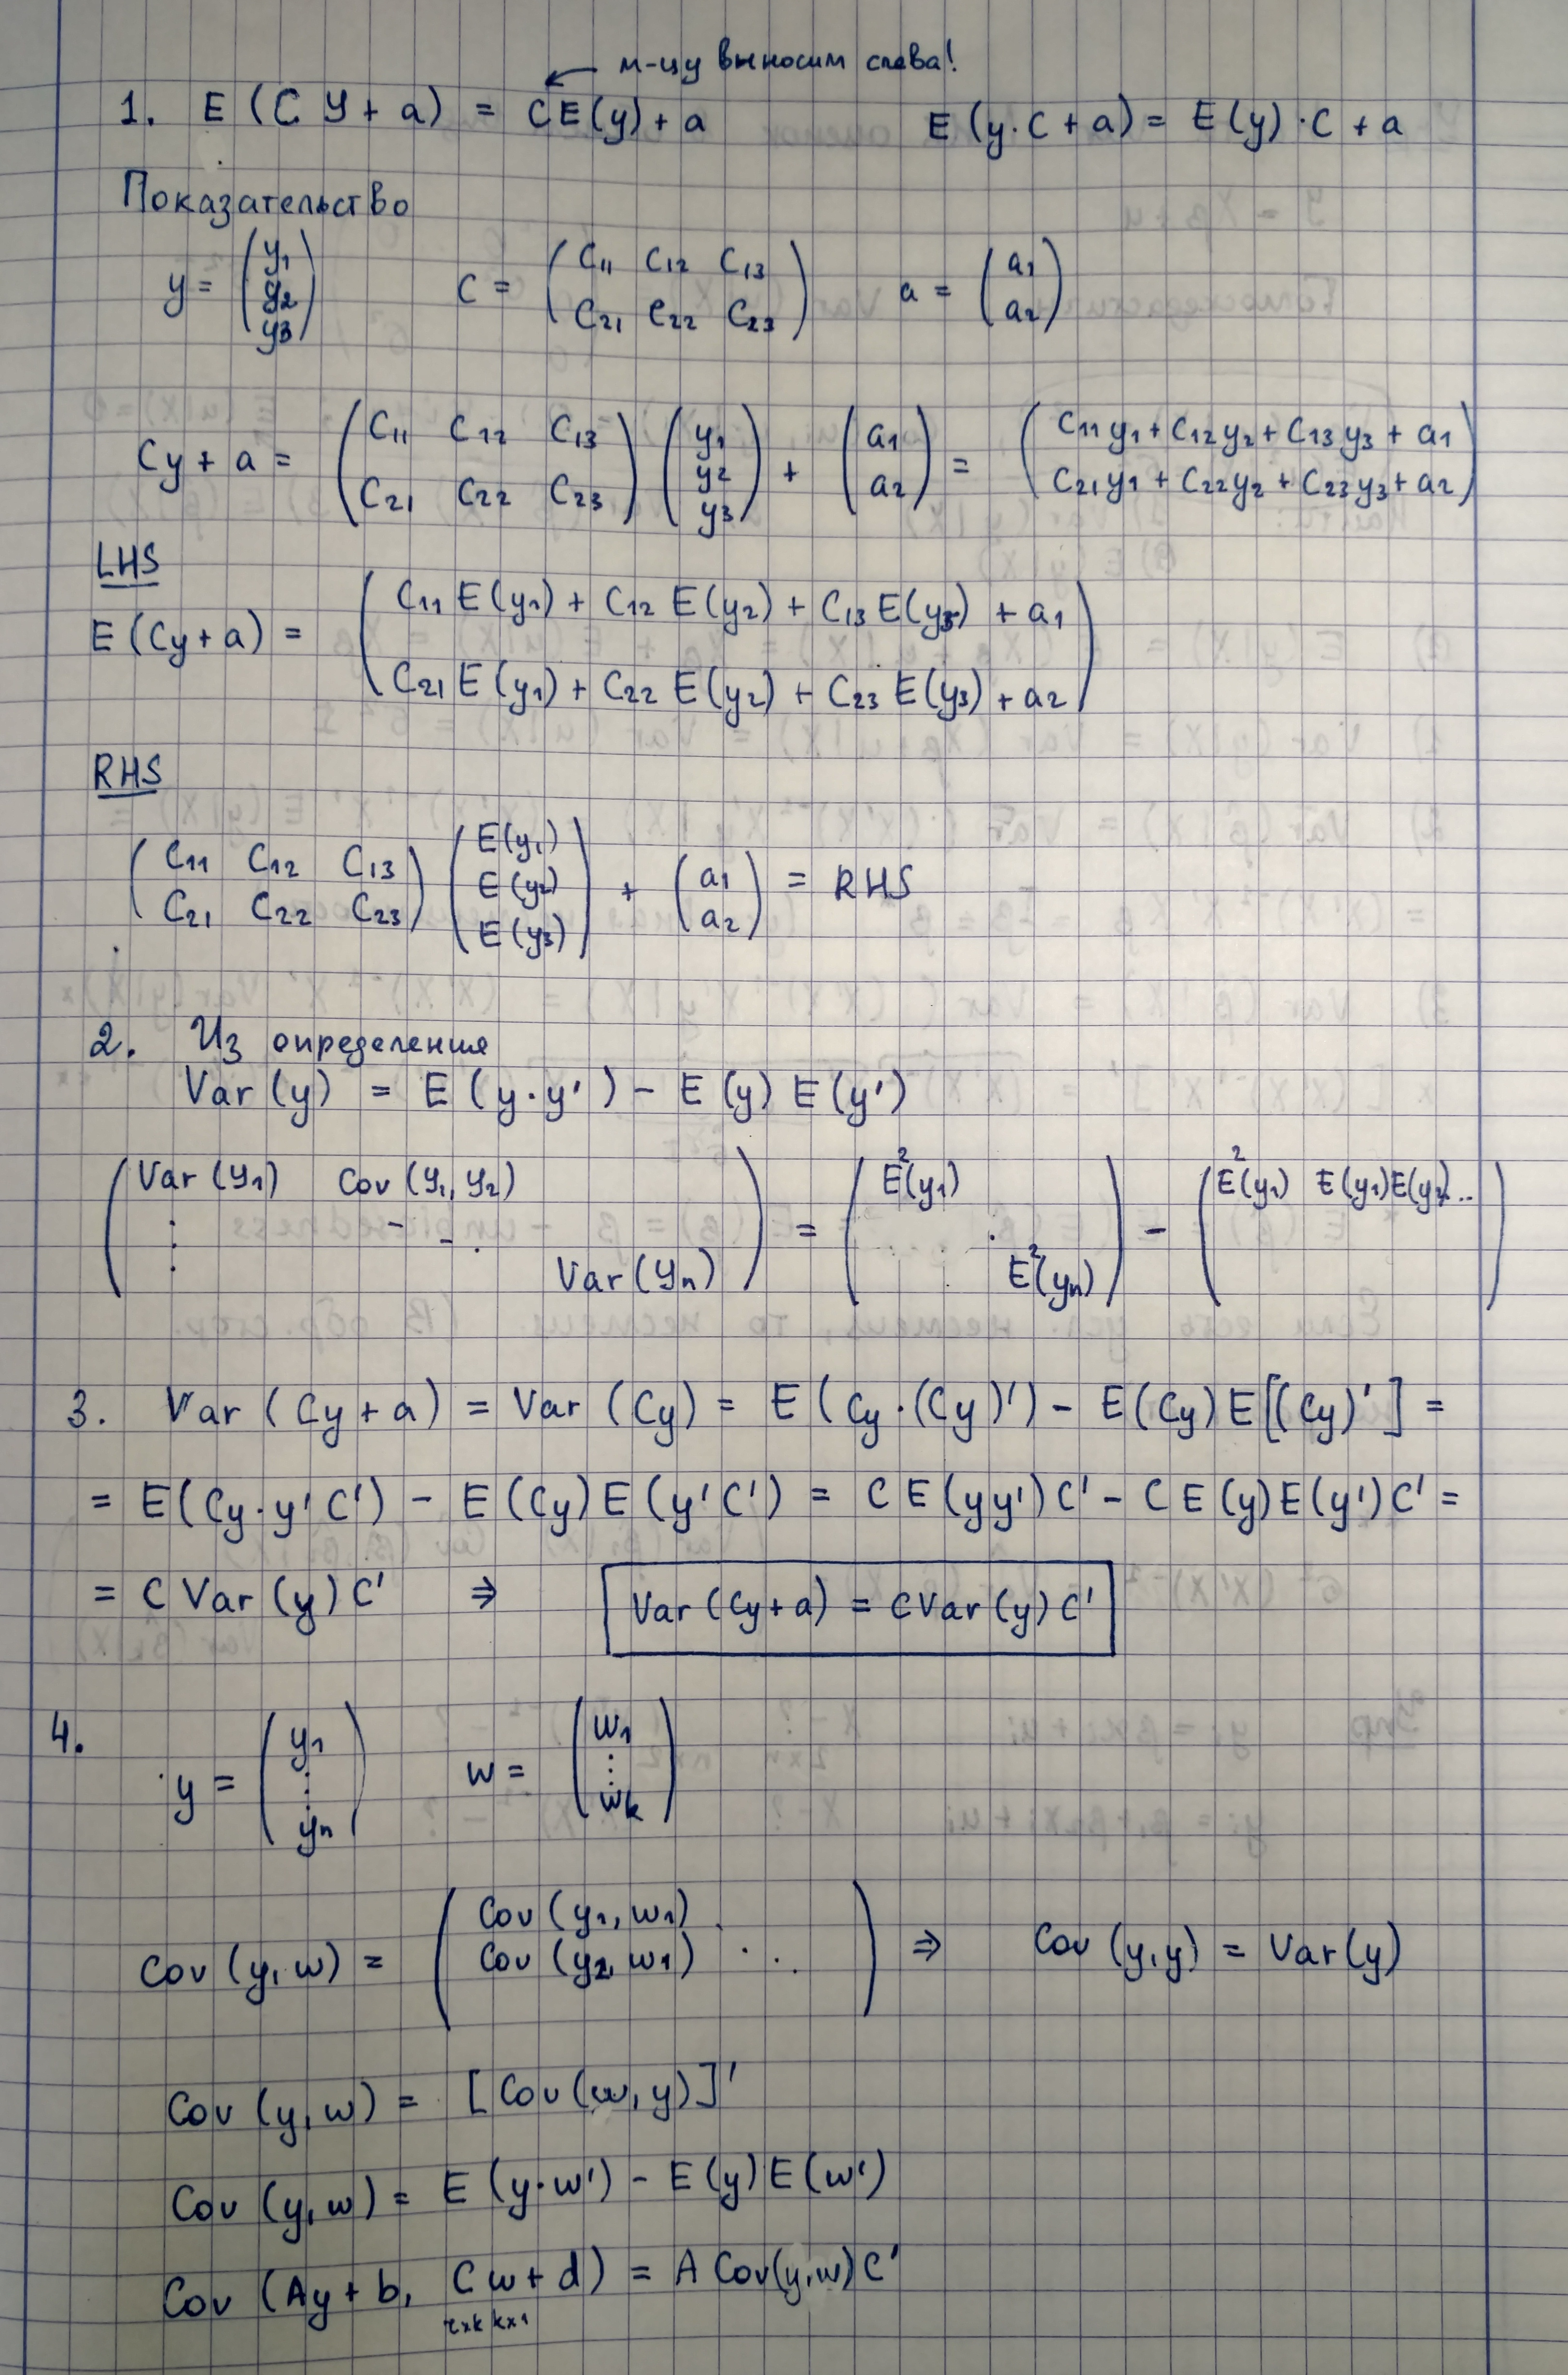 м-цу выносим слева!
1. E (C y + a) = C E(y) + a E (y·C + a) = E(y)·C + a
Доказательство
y = (y1 y2 y3) C = (C11 C12 C13 C21 C22 C23) a = (a1 a2)
Cy + a = (C11 C12 C13 C21 C22 C23) (y1 y2 y3) + (a1 a2) = (C11 y1 + C12 y2 + C13 y3 + a1 C21 y1 + C22 y2 + C23 y3 + a2)
LHS
E (Cy + a) = (C11 E(y1) + C12 E(y2) + C13 E(y3) + a1 C21 E(y1) + C22 E(y2) + C23 E(y3) + a2)
RHS
(C11 C12 C13 C21 C22 C23) (E(y1) E(y2) E(y3)) + (a1 a2) = RHS
2. Из определения
Var (y) = E (y·y') - E (y) E (y')
(Var (y1) Cov (y1, y2) ... Var (yn)) = (E²(y1) ... E²(yn)) - (E²(y1) E(y1)E(y2)...)
3. Var (Cy + a) = Var (Cy) = E (Cy·(Cy)') - E (Cy) E [(Cy)'] =
= E (Cy·y'C') - E (Cy) E (y'C') = C E (yy') C' - C E (y) E (y') C' =
= C Var (y) C' ⇒ Var (Cy + a) = C Var (y) C'
4.
y = (y1 ⋮ yn) w = (w1 ⋮ wk)
Cov (y, w) = (Cov (y1, w1) Cov (y2, w1) ...) ⇒ Cov (y, y) = Var (y)
Cov (y, w) = [Cov (w, y)]'
Cov (y, w) = E (y·w') - E (y) E (w')
Cov (Ay + b, Cw + d) = A Cov(y, w) C'
r×k k×1